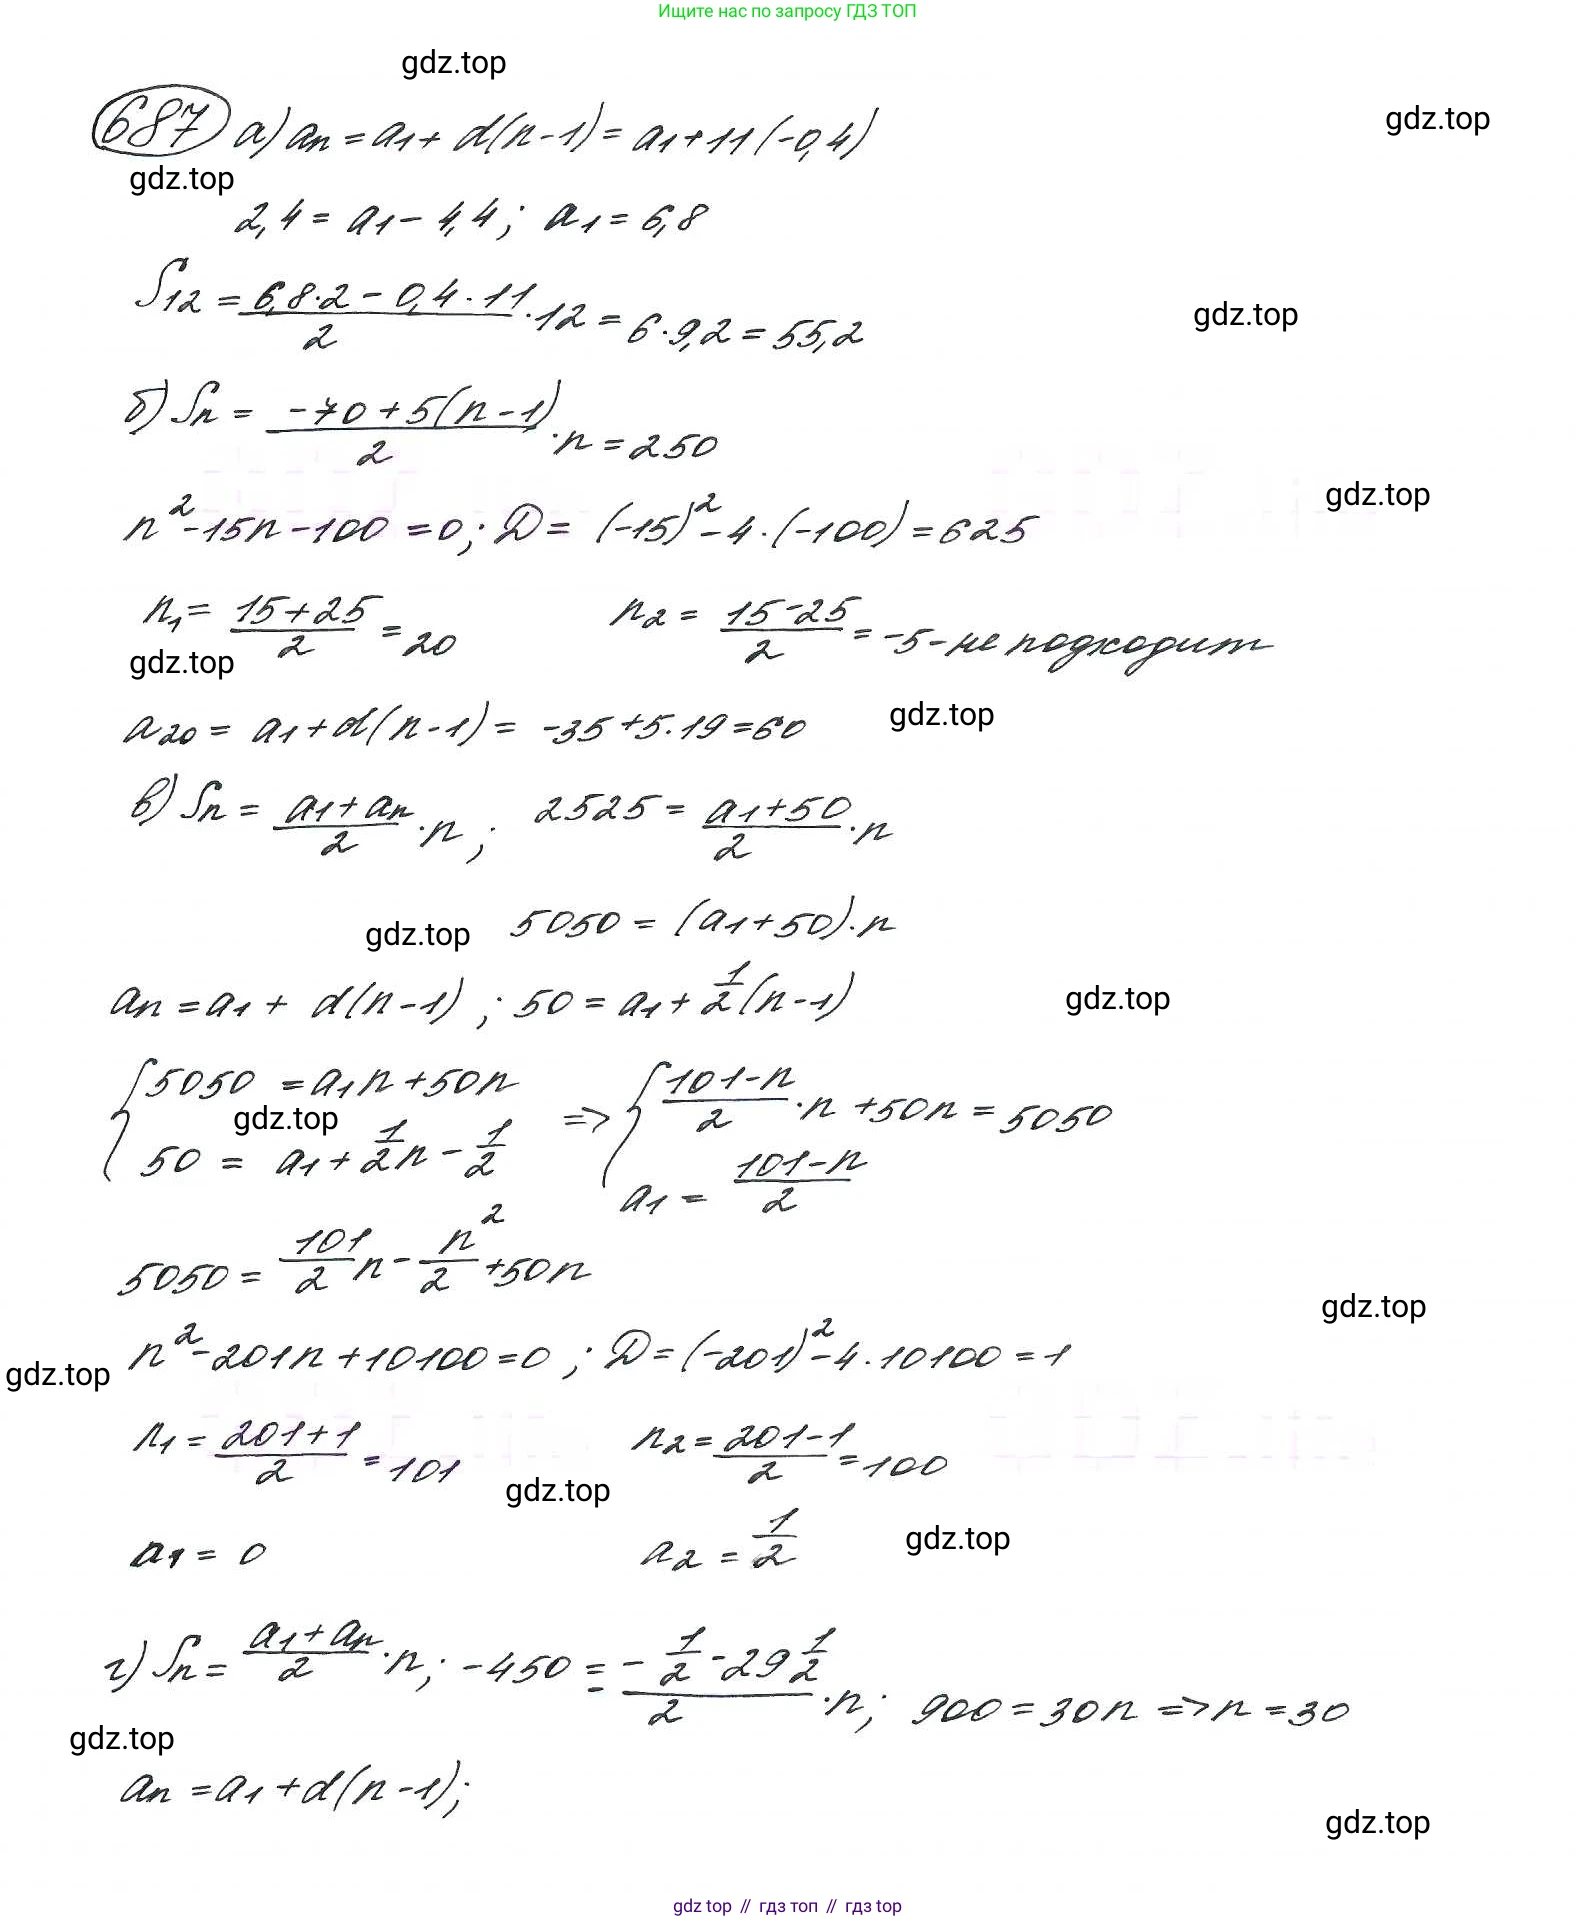 Ищите нас по запросу ГДЗ ТОП
gdz.top
687 а) an = a1 + d(n-1) = a1 + 11(-0,4)
gdz.top
gdz.top
2,4 = a1 - 4,4; a1 = 6,8
S12 = (6,8·2 - 0,4·11)/2 · 12 = 6·9,2 = 55,2
gdz.top
б) Sn = (-70 + 5(n-1))/2 · n = 250
gdz.top
n² - 15n - 100 = 0; D = (-15)² - 4·(-100) = 625
n1 = (15+25)/2 = 20 n2 = (15-25)/2 = -5 - не подходит
gdz.top
a20 = a1 + d(n-1) = -35 + 5·19 = 60
gdz.top
в) Sn = (a1 + an)/2 · n; 2525 = (a1 + 50)/2 · n
gdz.top
5050 = (a1 + 50)·n
an = a1 + d(n-1); 50 = a1 + 1/2(n-1)
gdz.top
{5050 = a1n + 50n => {(101-n)/2 · n + 50n = 5050
gdz.top
50 = a1 + 1/2n - 1/2 a1 = (101-n)/2
5050 = 101/2 n - n²/2 + 50n
gdz.top
n² - 201n + 10100 = 0; D = (-201)² - 4·10100 = 1
gdz.top
n1 = (201+1)/2 = 101 n2 = (201-1)/2 = 100
gdz.top
a1 = 0 a2 = 1/2
gdz.top
г) Sn = (a1 + an)/2 · n; -450 = (-1/2 - 29 1/2)/2 · n; 900 = 30n => n = 30
gdz.top
an = a1 + d(n-1);
gdz.top
gdz top // гдз топ // гдз top